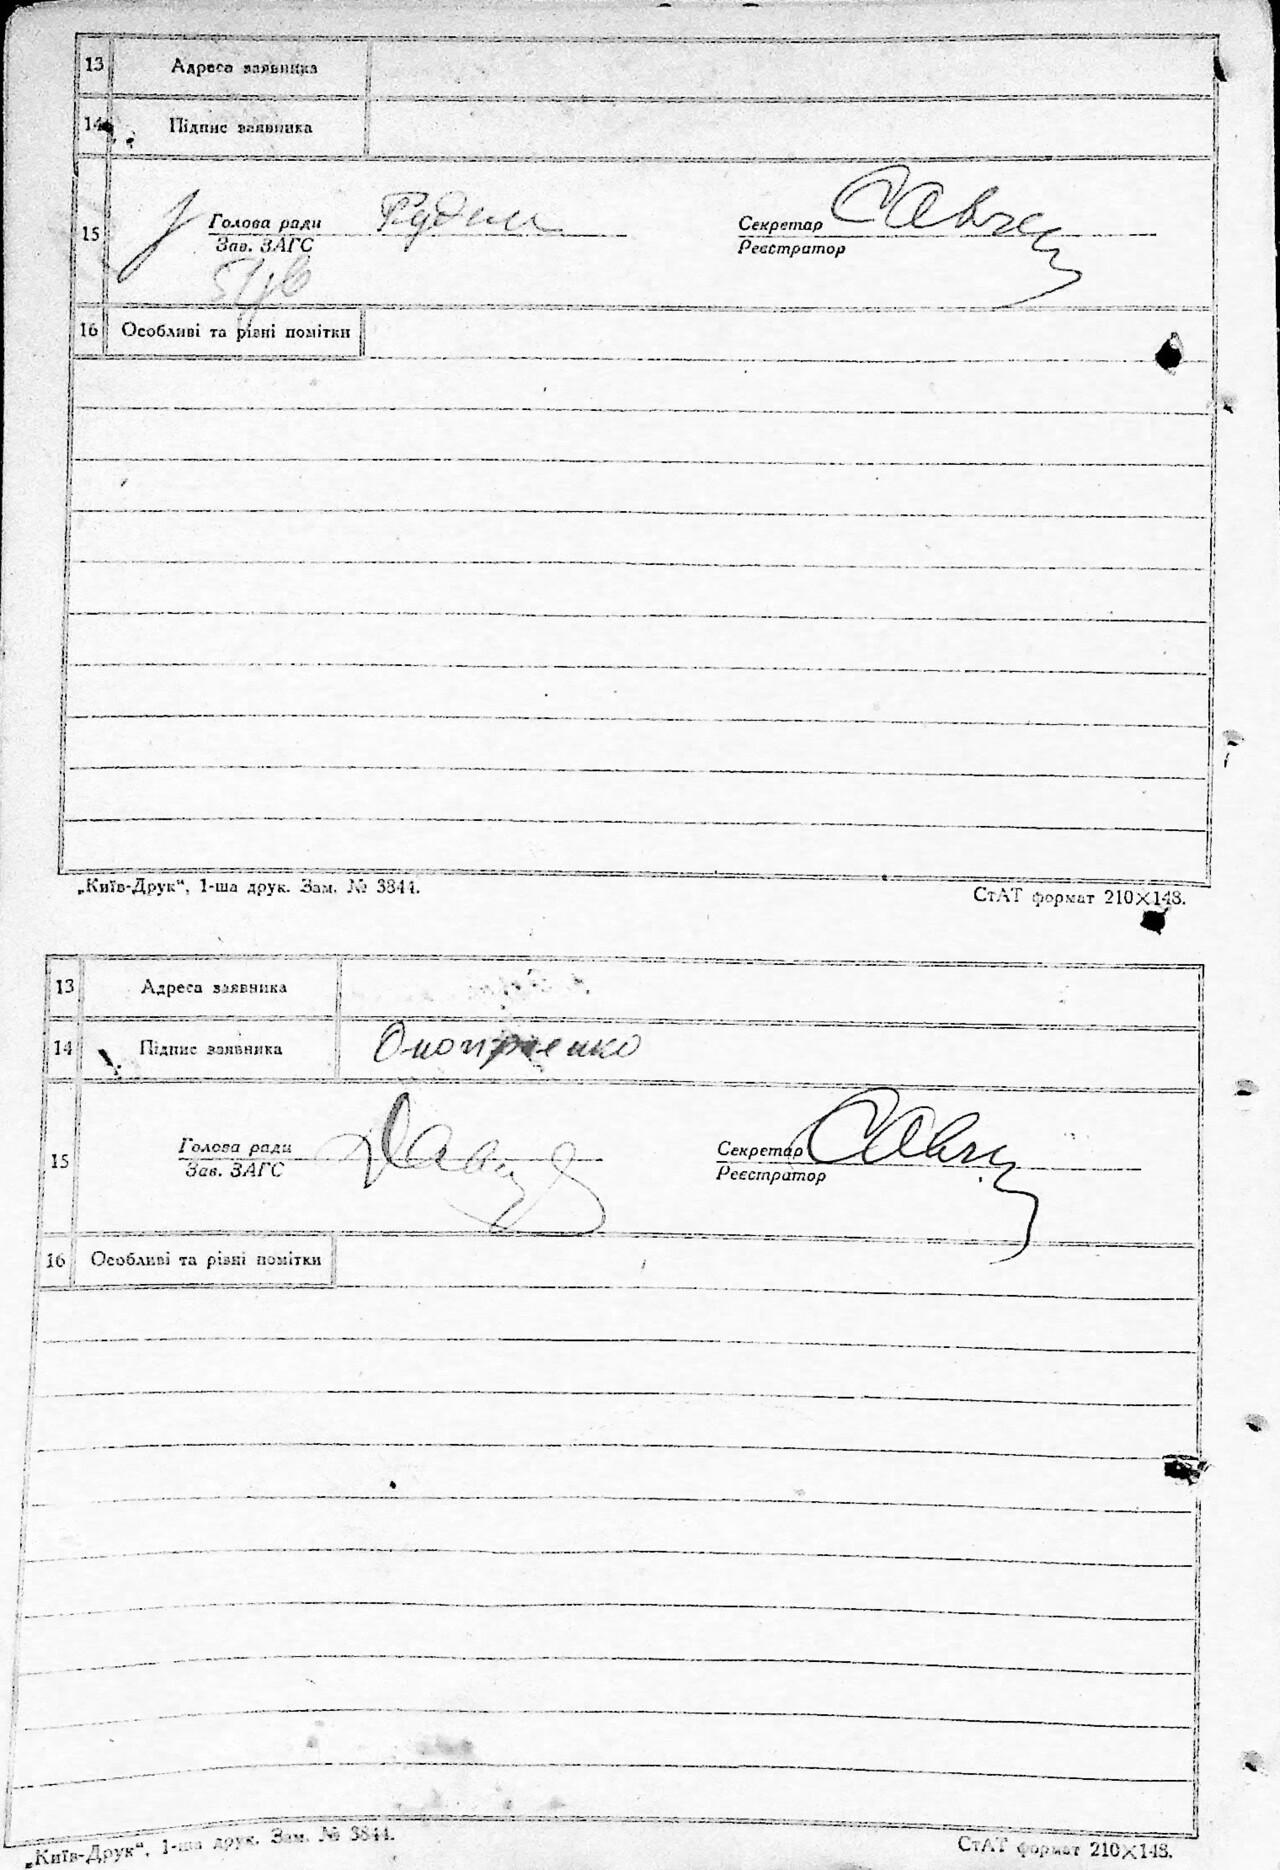 13 Адреса заявника
14 Підпис заявника
15 Голова ради Секретар
Зав. ЗАГС Реєстратор
16 Особливі та рівні помітки
„Київ-Друк“, 1-ша друк. Зам. № 3844. СтАТ формат 210×148.
13 Адреса заявника
14 Підпис заявника Онопрієнко
15 Голова ради Секретар
Зав. ЗАГС Реєстратор
16 Особливі та рівні помітки
„Київ-Друк“, 1-ша друк. Зам. № 3844. СтАТ формат 210×148.